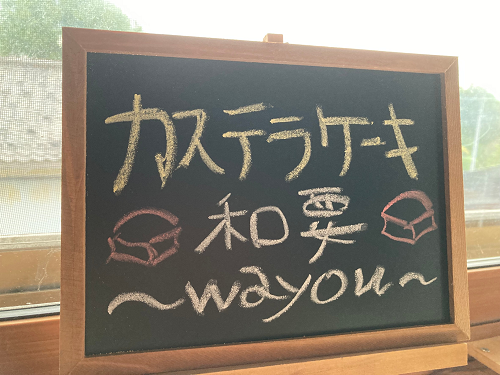 カステラケーキ
和要
～wayou～